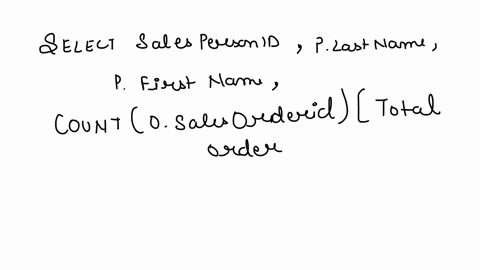 SELECT SalesPersonID , P.LastName,
P. First Name,
COUNT ( O. SalesOrderid) [ Total
order